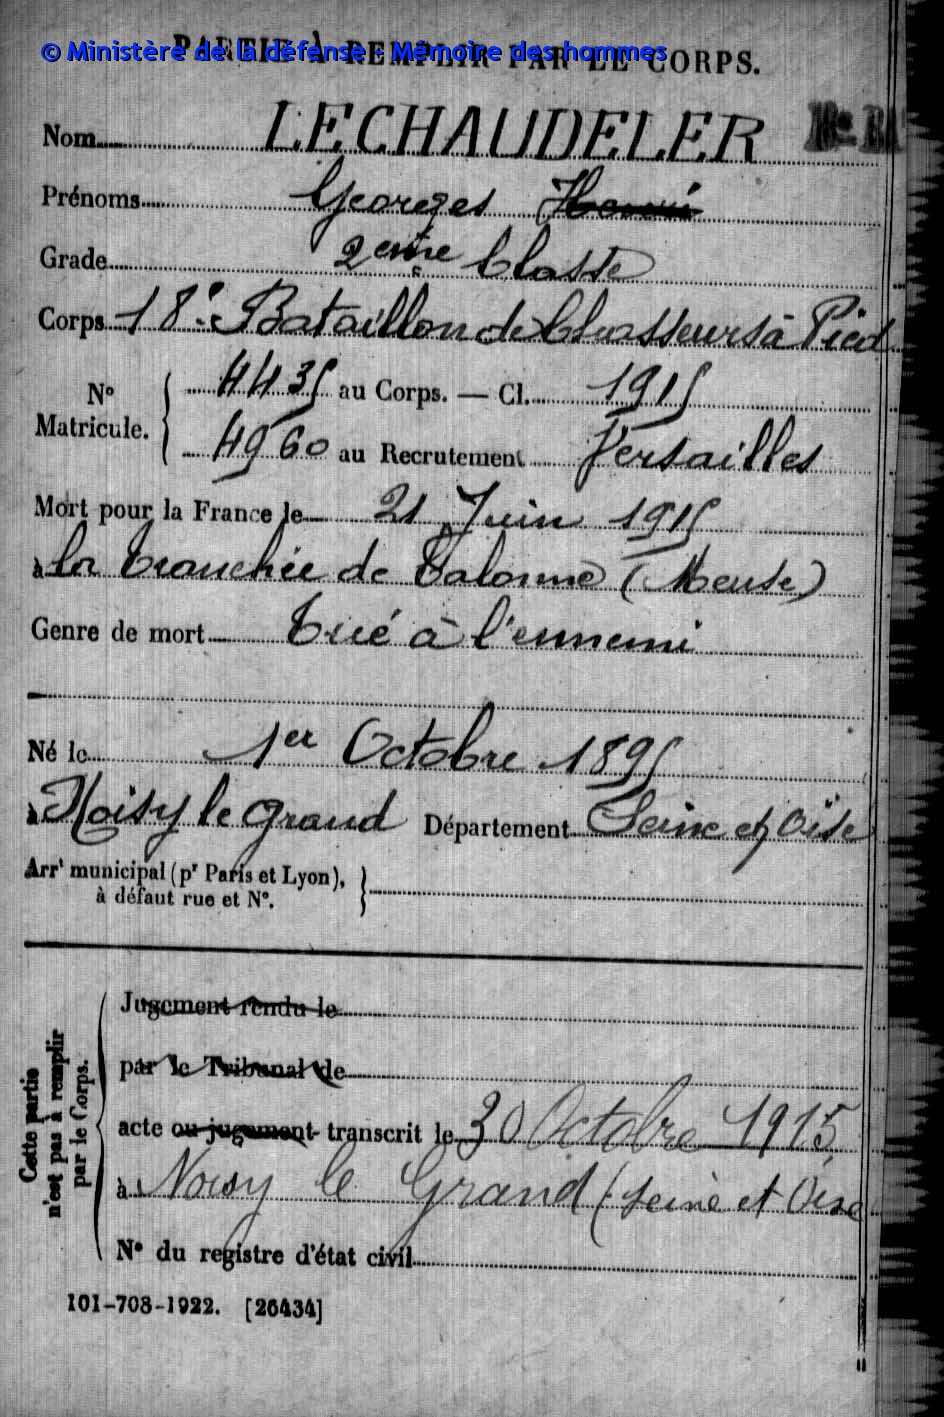 PARTIE À REMPLIR PAR LE CORPS.
© Ministère de la défense - Mémoire des hommes
Nom LECHAUDELER
Prénoms Georges Henri
Grade 2ème Classe
Corps 18e Bataillon de Chasseurs à Pied
N° Matricule. { 4435 au Corps. — Cl. 1915
4960 au Recrutement Versailles
Mort pour la France le 21 Juin 1915
à la tranchée de Calonne (Meuse)
Genre de mort Tué à l'ennemi
Né le 1er Octobre 1895
à Noisy le Grand Département Seine et Oise
Arrt municipal (pr Paris et Lyon),
à défaut rue et N°.
Cette partie
n'est pas à remplir
par le Corps.
Jugement rendu le
par le Tribunal de
acte ou jugement transcrit le 30 Octobre 1915
à Noisy le Grand (Seine et Oise
N° du registre d'état civil
101-708-1922. [26434]